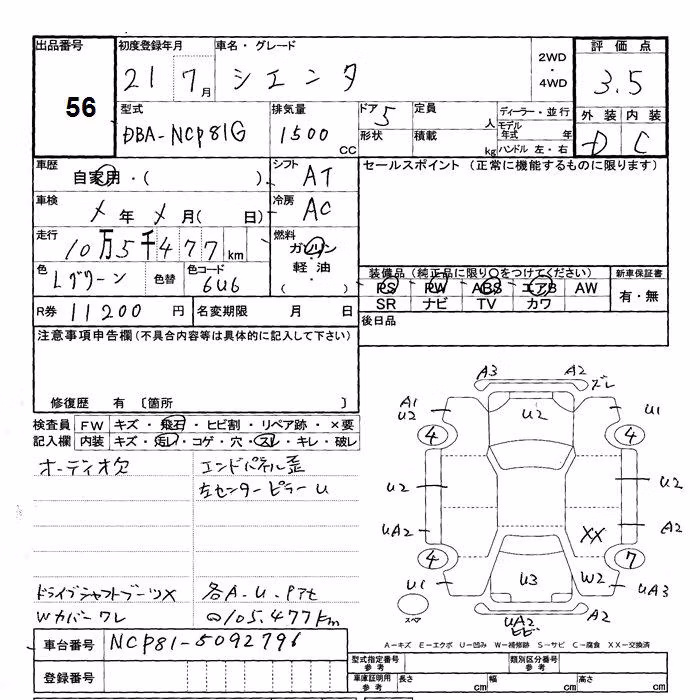 出品番号 初度登録年月 車名・グレード 2WD・4WD 評価点
56 21 7月 シエンタ 3.5
型式 排気量 ドア 5 定員 人 ディーラー・並行 外装 内装
DBA-NCP81G 1500 CC 形状 積載 kg モデル年式 年 ハンドル 左・右 D C
車歴 自家用・( ) シフト AT セールスポイント (正常に機能するものに限ります)
車検 メ 年 メ 月( 日) 冷房 AC
走行 10万5千477km 燃料 ガソリン・軽油・( )
色 Lグリーン 色替 色コード 6U6
装備品(純正品に限り○をつけてください) 新車保証書
PS PW ABS エアB AW 有・無
SR ナビ TV カワ
R券 11200 円 名変期限 月 日 後日品
注意事項申告欄(不具合内容等は具体的に記入して下さい)
修復歴 有 〔箇所 〕
検査員 FW キズ・飛石・ヒビ割・リペア跡・×要
記入欄 内装 キズ・汚レ・コゲ・穴・スレ・キレ・破レ
オーディオ欠 エンドパネル歪
左センターピラーU
ドライブシャフトブーツX 各A.U.Pアセ
Wカバーワレ 105.477km
車台番号 NCP81-5092796
登録番号
A3 A2 ズレ
A1 U2 U2 U1
4 4
U2 U2
UA2 XX A2
4 7
U1 U3 W2 UA3
スペア UA2 ヒビ A2
A-キズ E-エクボ U-凹み W-補修跡 S-サビ C-腐食 XX-交換済
型式指定番号 参考 類別区分番号 参考
車庫証明用 参考 長さ cm 幅 cm 高さ cm